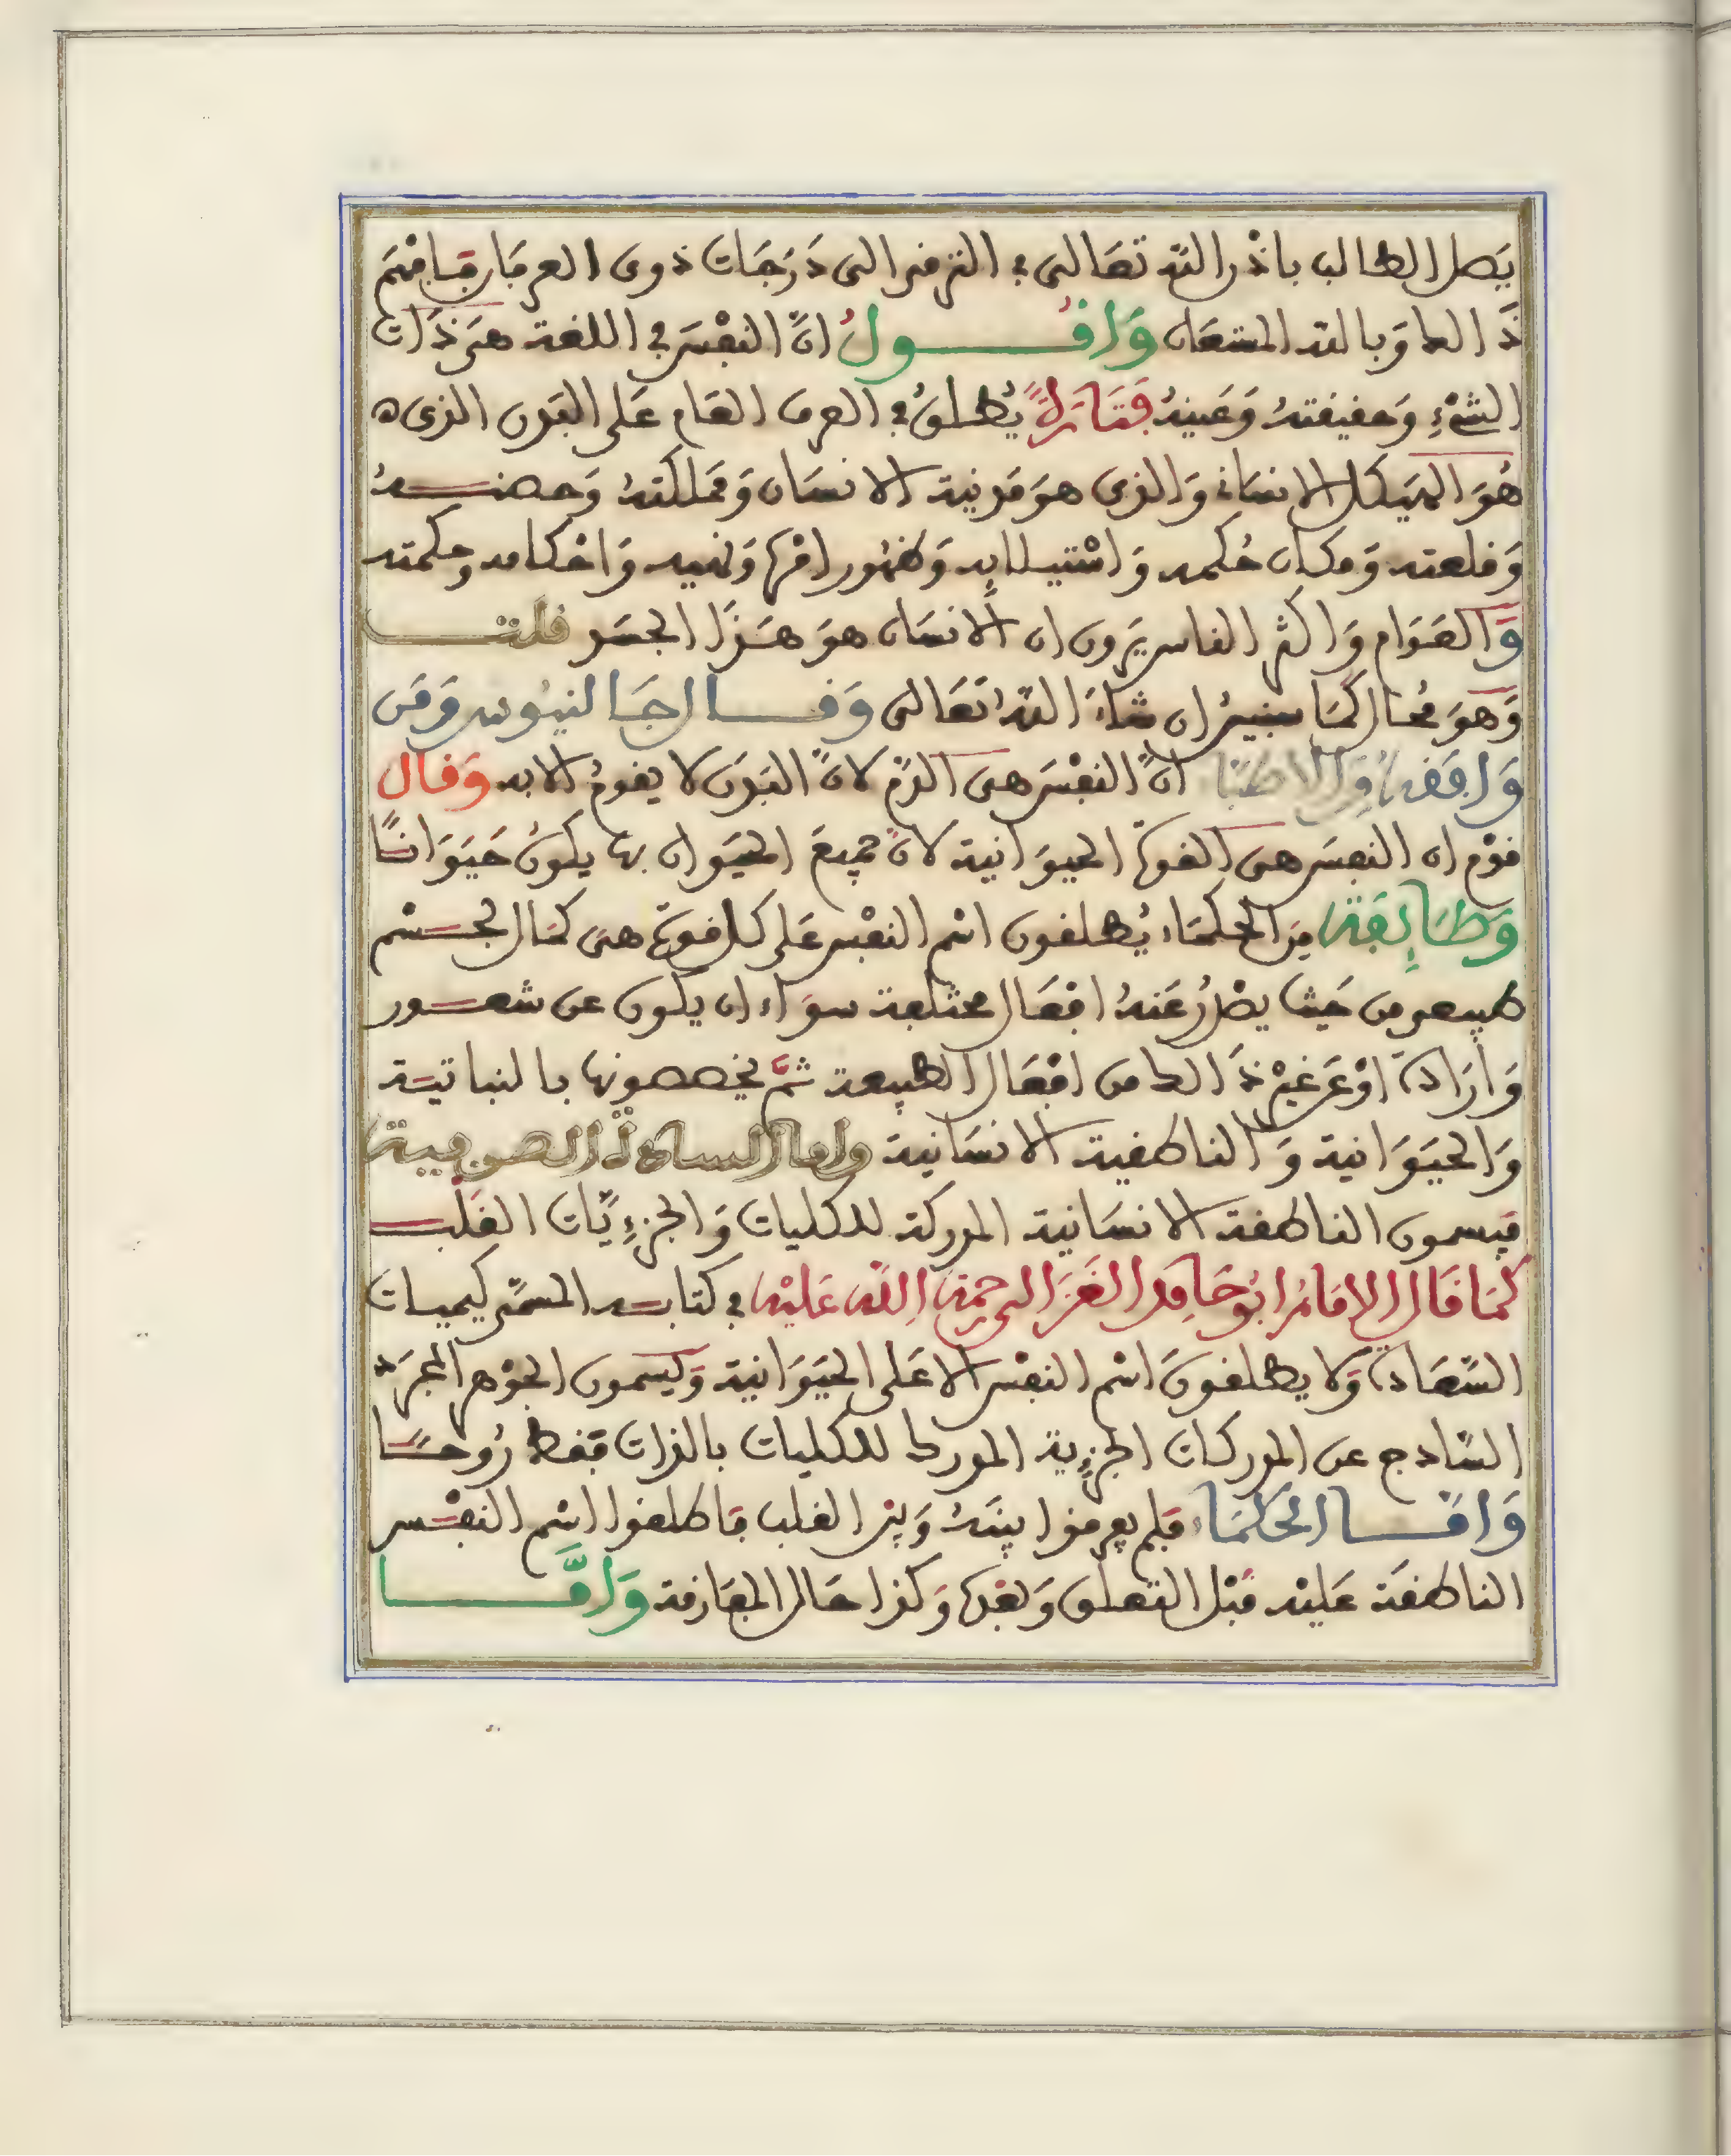 يَصل الطالب باذْن الله تعَالى في الترقي الى دَرَجَات ذوى العرفان فافهَم
ذَالك وَبالله المستعَان وَاقُـــول انَّ النفْسَ في اللغة هىَ ذَات
الشىْءِ وَحقيقتهُ وَعَينهُ فتَارَةً يُطلقُ في العرف العَام عَلى البَدن الذى ه
هُوَ الهَيكل الانسَانى وَالذى هوَ مَدينة الانسَان وَمَملكتهُ وَحصنـــهُ
وَقلعته وَمكان حُكمه وَاسْتيلايِه وَظهُور امْره وَنهيه وَاحْكامه وحِكمته
وَالعَوَام وَاكثر الناس يَرون ان الانسَان هوَ هَـذَا الجسَد قلتـــ
وَهوَ محُال كمَا سنبينُ ان شاءَ اللهُ تعَالى وَقـــال جَالنيُوس وَمَن
وَافقهُ وَالاطبَا انَّ النفْسَ هىَ الدَّم لانَّ البَدَن لا يقومُ الا به وَقال
قوْم ان النفسَ هىَ القوة الحيوَانية لانَّ جميعَ الحيَوان بها يكونُ حَيَوَانـًا
وَطَايِفة مِن الحُكمَاء يُطلقون اسْم النفْس عَلى كل قوة هىَ كمَال لجـسْم
طبيعى من حَيث يصْدُرُ عَنهُ افْعَال مختلفة سوَاء ان يكون عن شعــور
وَارَادة اوْ عَن غيْر ذَالك من افْعَال الطبيعة ثمَّ يخصصونها بالنباتيـة
وَالحيَوَانية وَالناطقية الانسَانية واما السادة الصوفية
فيسمون الناطقة الانسَانية المدركة للكليات وَالجزءِيَّات القَلبـــ
كمَا قَال الامَامُ ابُو حَامِد الغَزَالى رحمَة اللّه عَليْه في كتابـه المسَمَّى كيميات
السَّعَادة وَلا يطلقونَ اسْم النفْس الا عَلى الحيَوَانية وَيسمون الجوْهر المجرَّد
السَّادج عن المدركات الجزءِية المدرك للكليات بالذات فقط رُوحـًا
وَامَّـــا الحُكمَاء فلم يعرفوا بينَهُ وَبيْن القلب فاطلقوا اسْم النفْـس
الناطقَة عَليْه قَبْل التعلق وَبعْده وَكذا حَال المفَارقة وَامَّـــا